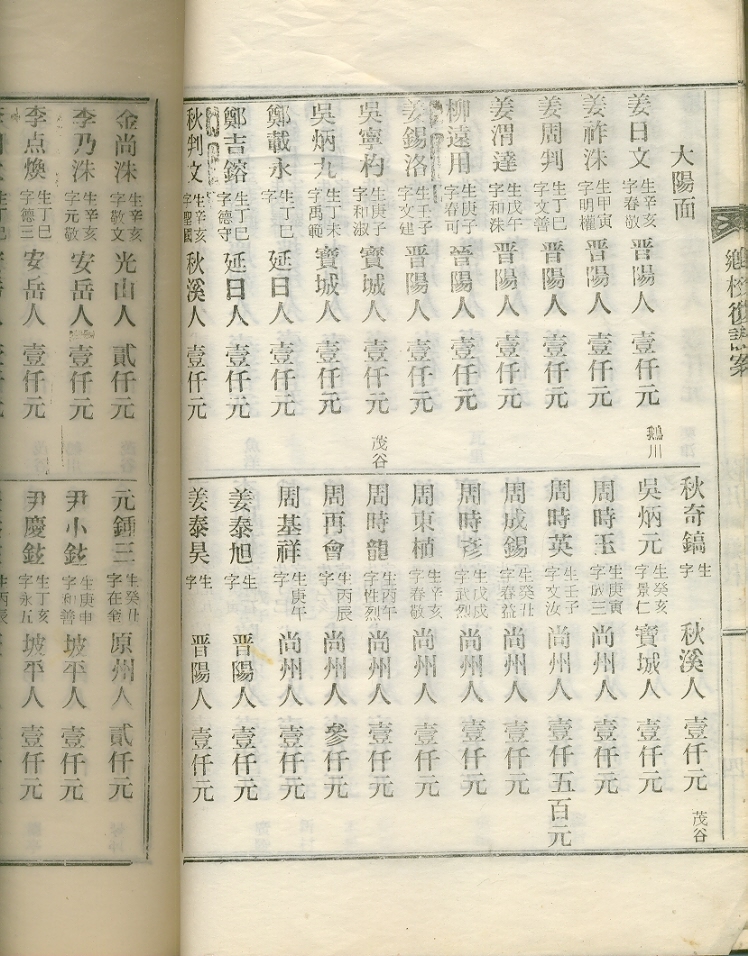 大陽面
姜日文 生辛亥 字春敬 晋陽人 壹仟元 鵝川
姜祚洙 生甲寅 字明權 晋陽人 壹仟元
姜周判 生丁巳 字文善 晋陽人 壹仟元
姜渭達 生戊午 字和洙 晋陽人 壹仟元
柳遠用 生庚子 字春可 晉陽人 壹仟元
姜錫洛 生壬子 字文建 晋陽人 壹仟元
吳寧杓 生庚子 字和淑 寶城人 壹仟元 茂谷
吳炳九 生丁未 字禹範 寶城人 壹仟元
鄭載永 生丁巳 字 延日人 壹仟元
鄭吉鎔 生丁巳 字德守 延日人 壹仟元
秋判文 生辛亥 字聖國 秋溪人 壹仟元
秋奇鎬 生 字 秋溪人 壹仟元 茂谷
吳炳元 生癸亥 字景仁 寶城人 壹仟元
周時玉 生庚寅 字成三 尙州人 壹仟元
周時英 生壬子 字文汝 尙州人 壹仟五百元
周成錫 生癸丑 字春益 尙州人 壹仟元
周時彦 生戊戍 字武烈 尙州人 壹仟元
周東植 生辛亥 字春敬 尙州人 壹仟元
周時龍 生丙午 字性烈 尙州人 壹仟元
周再會 生丙辰 字 尙州人 參仟元
周基祥 生庚午 字 尙州人 壹仟元
姜泰旭 生 字 晋陽人 壹仟元
姜泰昊 生 字 晋陽人 壹仟元
金尚洙 生辛亥 字敬文 光山人 貳仟元
李乃洙 生辛亥 字元敬 安岳人 壹仟元
李点煥 生丁巳 字德三 安岳人 壹仟元
元鍾三 生癸丑 字在奎 原州人 貳仟元
尹小鉉 生庚申 字和善 坡平人 壹仟元
尹慶鉉 生丁亥 字永五 坡平人 壹仟元